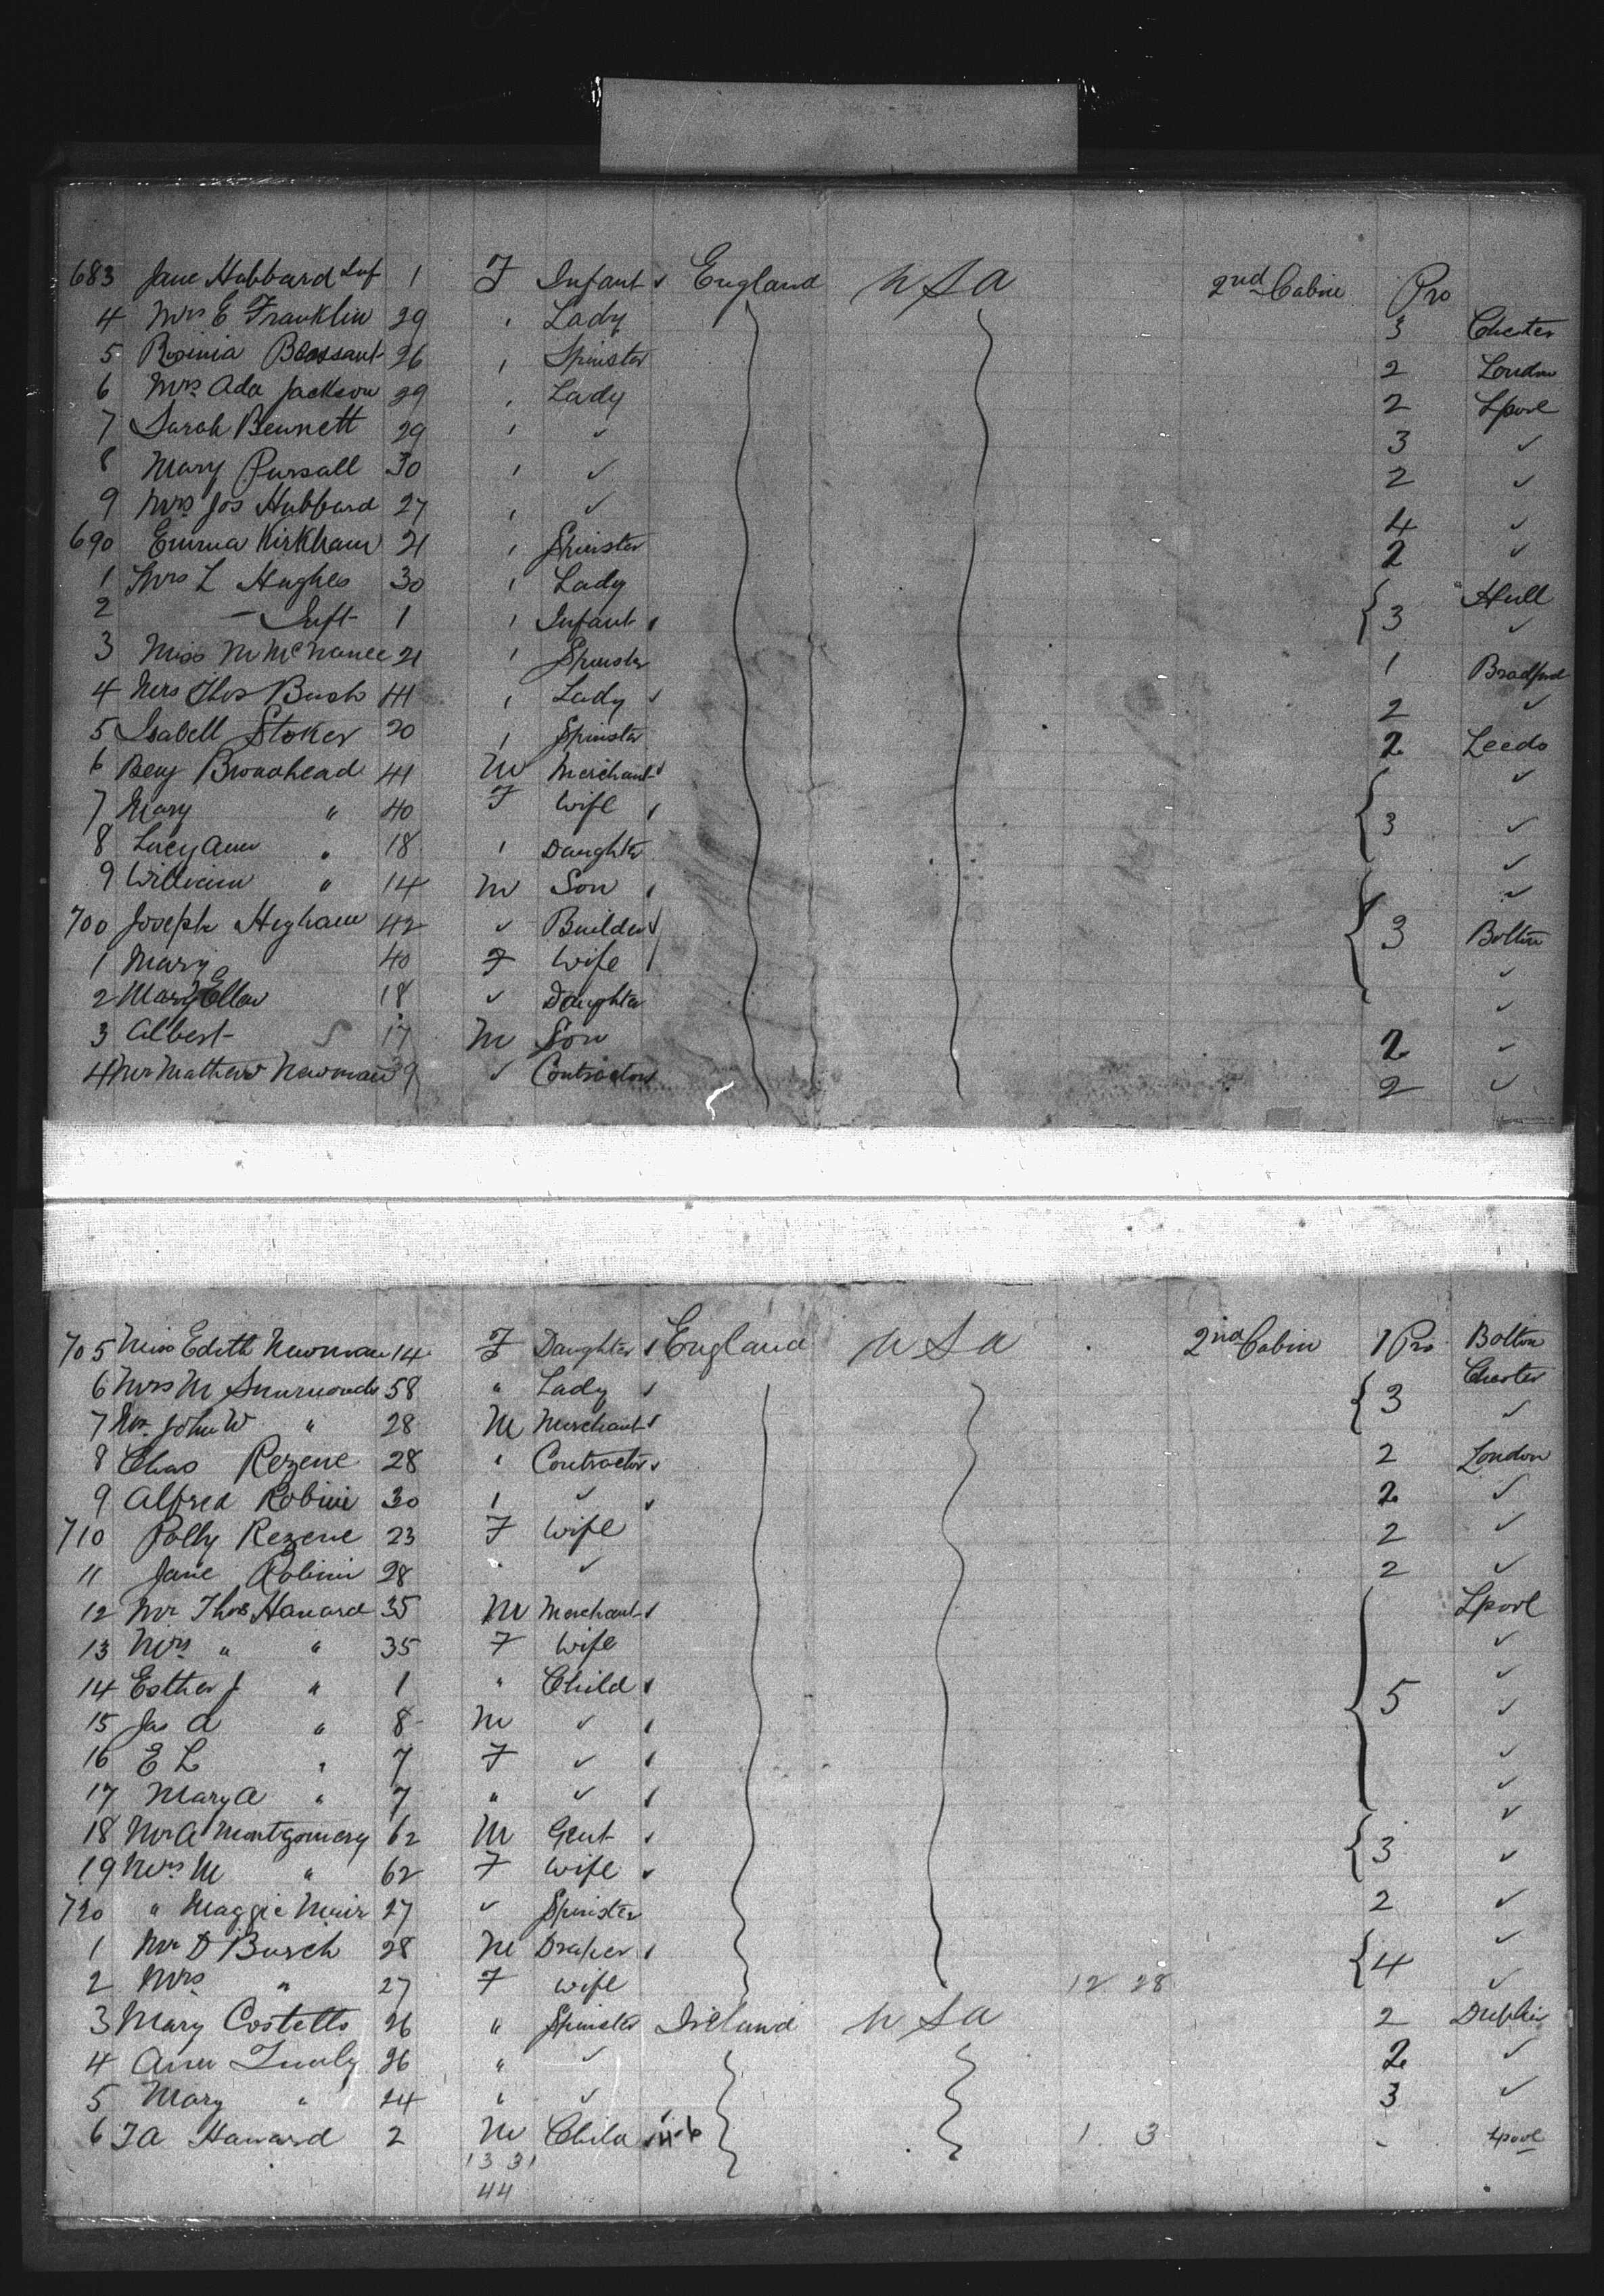 683 Jane Hubbard Inf 1 F Infant ✓ England U S A 2nd Cabin Pro
4 Mrs E Franklin 29 " Lady 3 Chester
5 26 " Spinster 2 London
6 Mrs Ada Jackson 29 " Lady 2 Lpool
7 Sarah Bennett 29 " ✓ 3 ✓
8 Mary Pursall 30 " ✓ 2 ✓
9 Mrs Jos Hubbard 27 " ✓ 4 ✓
690 Emma Kirkham 21 " Spinster 2 ✓
1 Mrs L Hughes 30 " Lady Hull
2 — Inft 1 " Infant 3 ✓
3 Miss M 21 " Spinster 1 Bradford
4 Mrs Thos Bush 41 " Lady ✓ 2 ✓
5 Isabell Stoker 20 " Spinster 2 Leeds
6 Benj Broadhead 41 M Merchant ✓
7 Mary " 40 F Wife 3 ✓
8 Lucy Ann " 18 " Daughter ✓
9 William " 14 M Son ✓
700 Joseph Higham 42 ✓ Builder 3 Bolton
1 Mary 40 F Wife ✓
2 Mary Ellen 18 ✓ Daughter ✓
3 Albert 17 M Son 2 ✓
4 Mr Mathew Newman 39 ✓ Contractor 2 ✓
705 Miss Edith Newman 14 F Daughter England U S A 2nd Cabin 1 Pro Bolton
6 Mrs M 58 " Lady 3 Chester
7 Mr John W " 28 M Merchant ✓
8 Chas Rezene 28 " Contractor 2 London
9 Alfred Robini 30 " ✓ 2 ✓
710 Polly Rezene 23 F Wife 2 ✓
11 Jane Robini 28 " ✓ 2 ✓
12 Mr Thos Hanard 35 M Merchant Lpool
13 Mrs " " 35 F Wife ✓
14 Esther J " 1 " Child ✓
15 Jas A " 8 M ✓ 5 ✓
16 E L " 7 F ✓ ✓
17 Mary A " 7 " ✓ ✓
18 Mr A Montgomery 62 M Gent ✓
19 Mrs M " 62 F Wife 3 ✓
720 " Maggie Muir 27 ✓ Spinster 2 ✓
1 Mr D Burch 28 M Draper ✓
2 Mrs " 27 F Wife 12 28 4 ✓
3 Mary Costello 26 " Spinster Ireland U S A 2 Dublin
4 Ann 26 " ✓ 2 ✓
5 Mary " 24 " ✓ 3 ✓
6 T A Hanard 2 M Child 1 3 Lpool
13 31
44